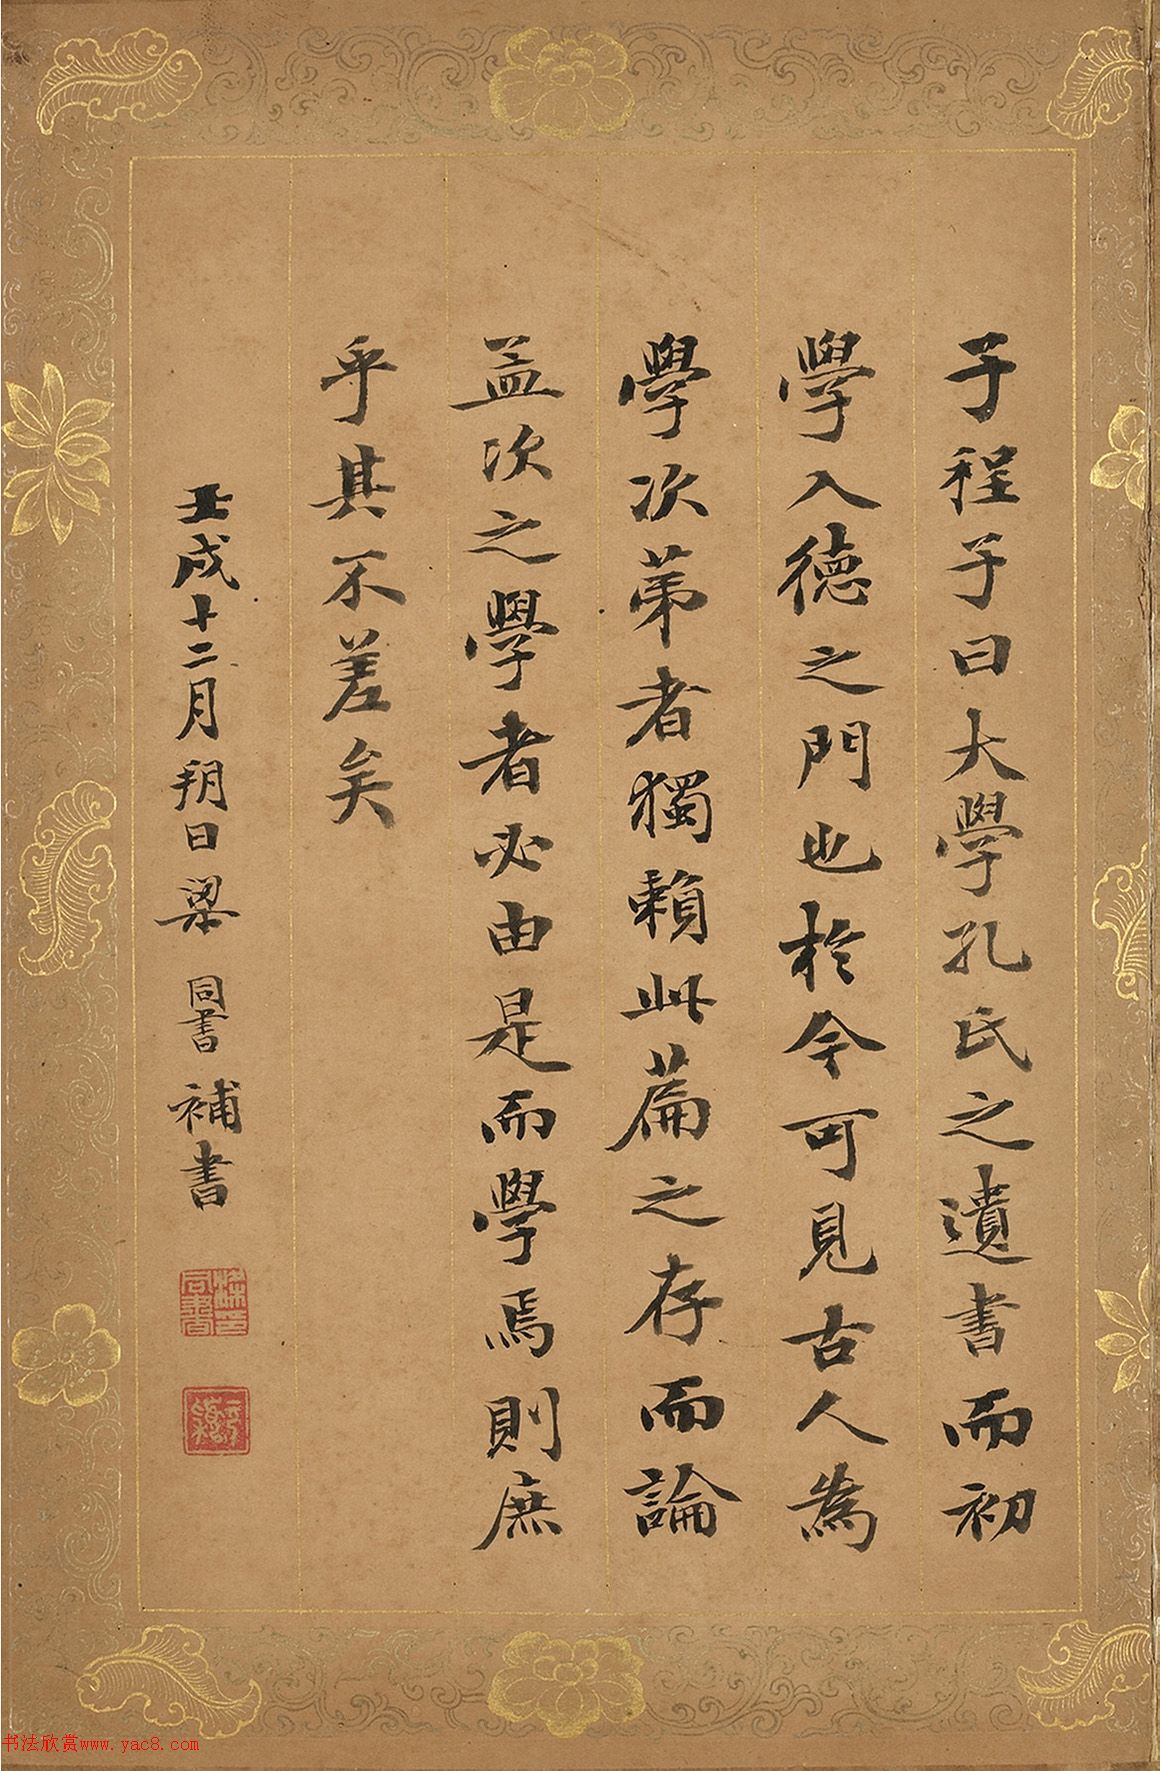 子程子曰大學孔氏之遺書而初
學入德之門也於今可見古人為
學次第者獨賴此篇之存而論
孟次之學者必由是而學焉則庶
乎其不差矣
壬戌十二月朔日梁同書補書
梁同書印
书法欣赏www.yac8.com